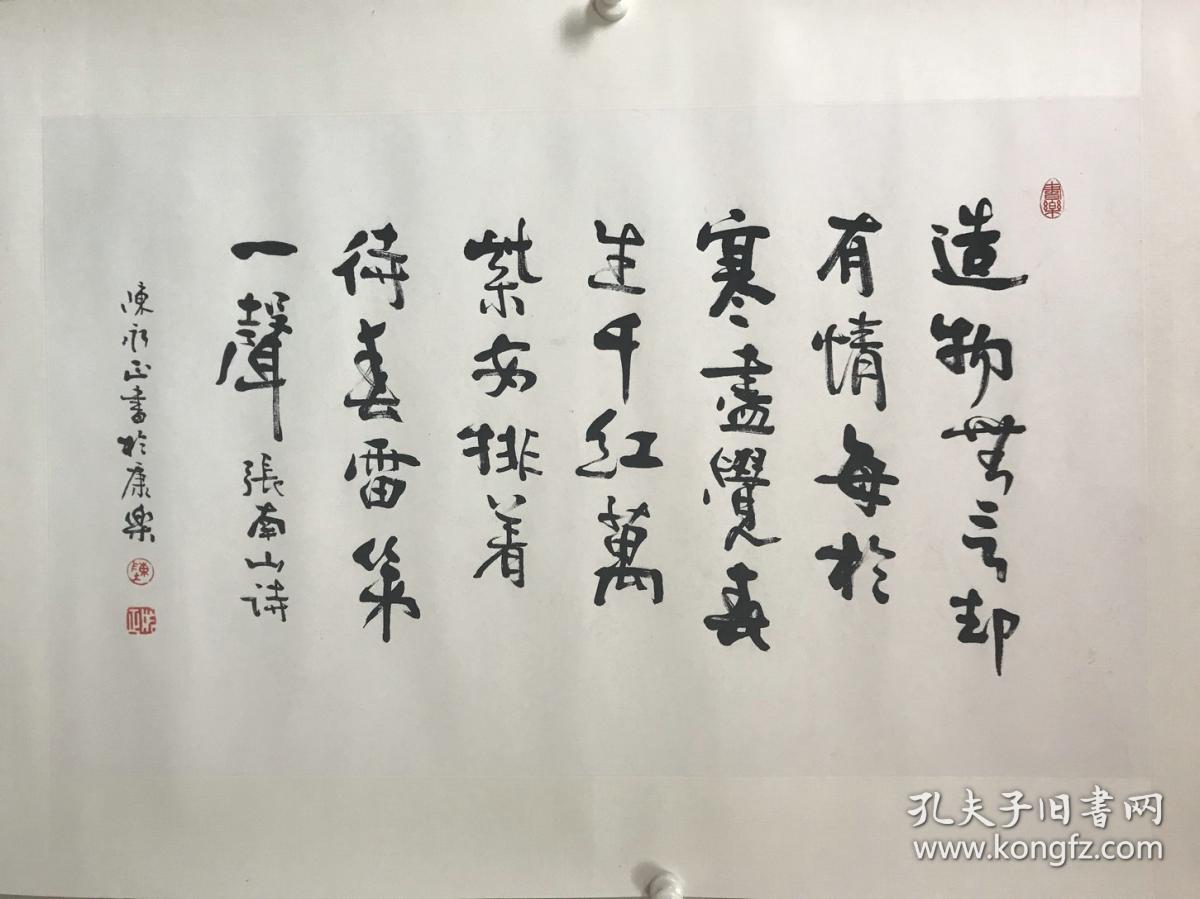 造物無言却
有情每於
寒盡覺春
生千紅萬
紫安排着
待春雷第
一聲 張南山詩
陳永正書於康樂
孔夫子旧书网
www.kongfz.com